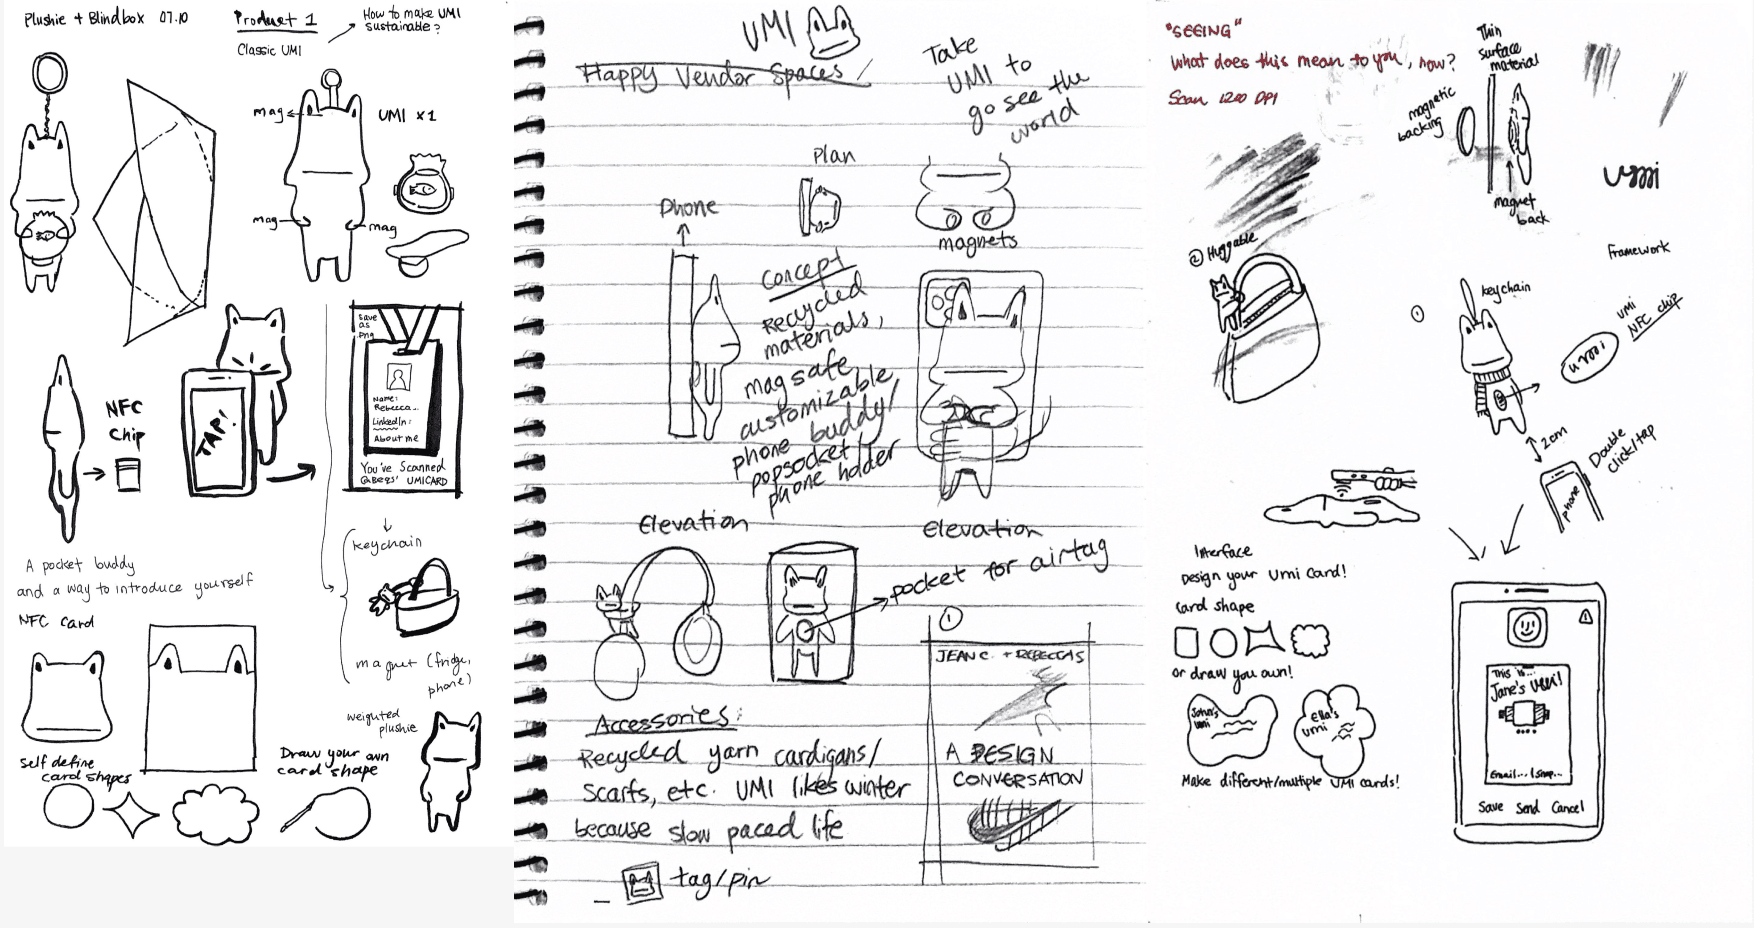 Plushie + Blindbox 07.10
Product 1
Classic UMI
How to make UMI
sustainable?
mag
UMI x1
mag
mag
NFC
Chip
TAP!
save
as
png
Name:
Rebecca...
LinkedIn:
About me
You've Scanned
@Becs' UMICARD
A pocket buddy
and a way to introduce yourself
NFC card
keychain
magnet (fridge,
phone)
weighted
plushie
Self define
card shapes
Draw your own
card shape
UMI
Happy Vendor Spaces
Take
UMI to
go see the
world
Plan
Phone
magnets
Concept
Recycled
materials,
magsafe
customizable
phone buddy/
popsocket/
phone holder
Elevation
Elevation
pocket for airtag
1
JEAN C. + REBECCAS
A DESIGN
CONVERSATION
Accessories:
Recycled yarn cardigans/
scarfs, etc. UMI likes winter
because slow paced life
tag/pin
"SEEING"
What does this mean to you, now?
Scan 1200 DPI
Thin
surface
material
magnetic
backing
magnet
back
umi
② Huggable
Framework
①
keychain
umi
NFC chip
umi
2cm
Double
click/tap
phone
Interface
Design your Umi Card!
card shape
or draw you own!
John's
umi
ella's
umi
Make different/multiple UMI cards!
This is...
Jane's UMI!
Email... | Shop...
Save Send Cancel